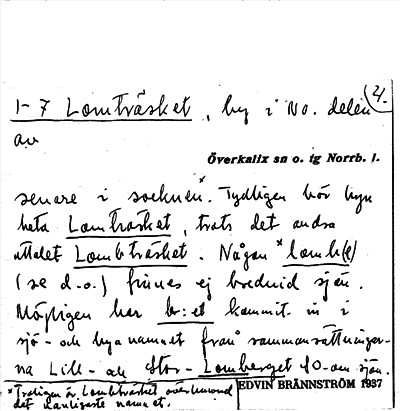 4.
1-7 Lomträsket, by i No. delen
av
Överkalix sn o. tg Norrb. l.
senare i socknen.* Tydligen bör byn
heta Lomträsket, trots det andra
uttalet Lombträsket. Någon *lomb(e)
(se d.o.) finnes ej bredvid sjön.
Möjligen har b:et kommit in i
sjö- och bynamnet från sammansättningar-
na Lill- och Stor-Lomberget NO-om sjön.
* Troligen är Lombträsket
det vanligaste namnet.
EDVIN BRÄNNSTRÖM 1937